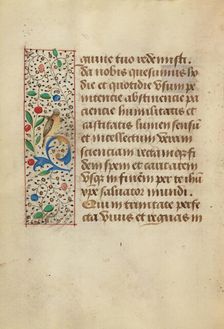 guine tuo redemisti.
da nobis quesumus ho
die et quotidie usum pe
nitencie abstinencie pa
ciencie humilitatis et
castitatis lumen sensum
et intellectum veram
scienciam rectamq; fi
dem spem et caritatem
usq; in finem per te ihū
xp̄e salvator mundi.
Qui in trinitate perfe
cta vivis et regnas in